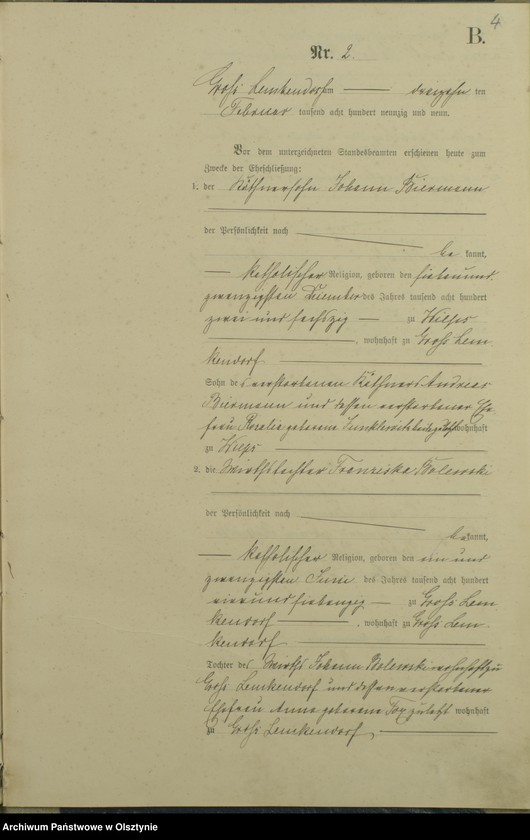 4
B.
Nr. 2
Gross Lemkendorf am dreizehn ten
Februar tausend acht hundert neunzig und neun.
Vor dem unterzeichneten Standesbeamten erschienen heute zum
Zwecke der Eheschließung:
1. der Käthnersohn Johann Biermann
der Persönlichkeit nach
be kannt,
katholischer Religion, geboren den siebenund
zwanzigsten des Jahres tausend acht hundert
zwei und sechszig zu
, wohnhaft zu Gross Lem
kendorf
Sohn des verstorbenen Käthners Andreas
Biermann und dessen verstorbener Ehe
frau Rosalie geborene wohnhaft
zu
2. die Wirthstochter Franziska
der Persönlichkeit nach
be kannt,
katholischer Religion, geboren den ein und
zwanzigsten Juni des Jahres tausend acht hundert
vierundsiebenzig zu Gross Lem
kendorf , wohnhaft zu Gross Lem
kendorf
Tochter des Wirths Johann wohnhaft zu
Gross Lemkendorf und dessen verstorbener
Ehefrau Anna geborene zuletzt wohnhaft
zu Gross Lemkendorf
Archiwum Państwowe w Olsztynie